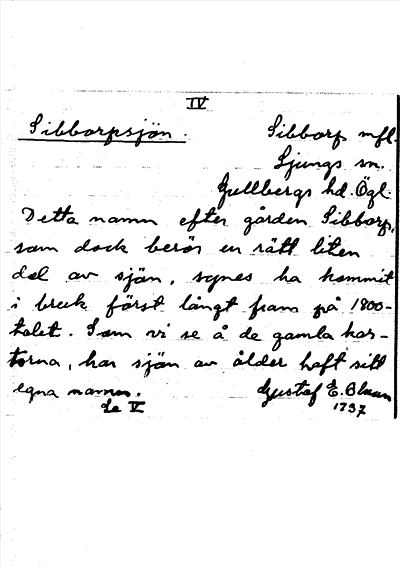 IV
Sibborpsjön. Sibborp mfl.
Ljungs sn.
Gullbergs hd. Ögl.
Detta namn efter gården Sibborp,
som dock berör en rätt liten
del av sjön, synes ha kommit
i bruk först långt fram på 1800-
talet. Som vi se å de gamla kar-
torna, har sjön av ålder haft sitt
egna namn. Gustaf E. Olsson
Se V 1937